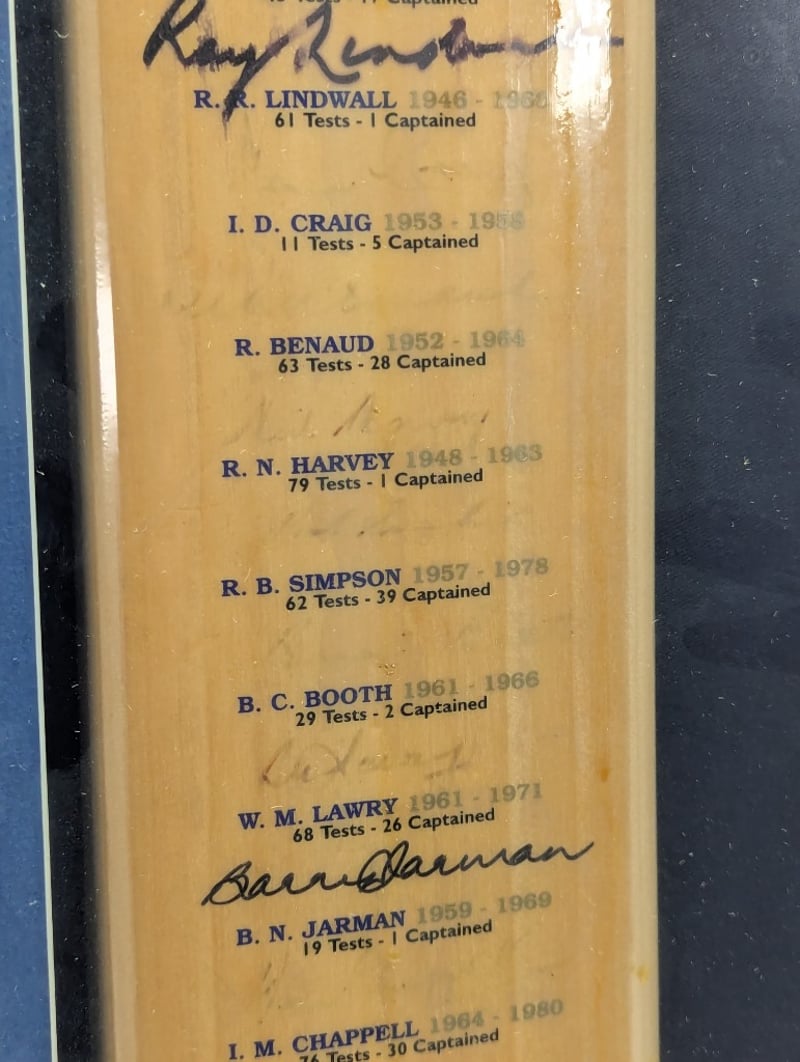 Ray Lindwall
R. R. LINDWALL 1946 - 1960
61 Tests - 1 Captained
I. D. CRAIG 1953 - 1958
11 Tests - 5 Captained
R. BENAUD 1952 - 1964
63 Tests - 28 Captained
R. N. HARVEY 1948 - 1963
79 Tests - 1 Captained
R. B. SIMPSON 1957 - 1978
62 Tests - 39 Captained
B. C. BOOTH 1961 - 1966
29 Tests - 2 Captained
W. M. LAWRY 1961 - 1971
68 Tests - 26 Captained
Barrie Jarman
B. N. JARMAN 1959 - 1969
19 Tests - 1 Captained
I. M. CHAPPELL 1964 - 1980
76 Tests - 30 Captained